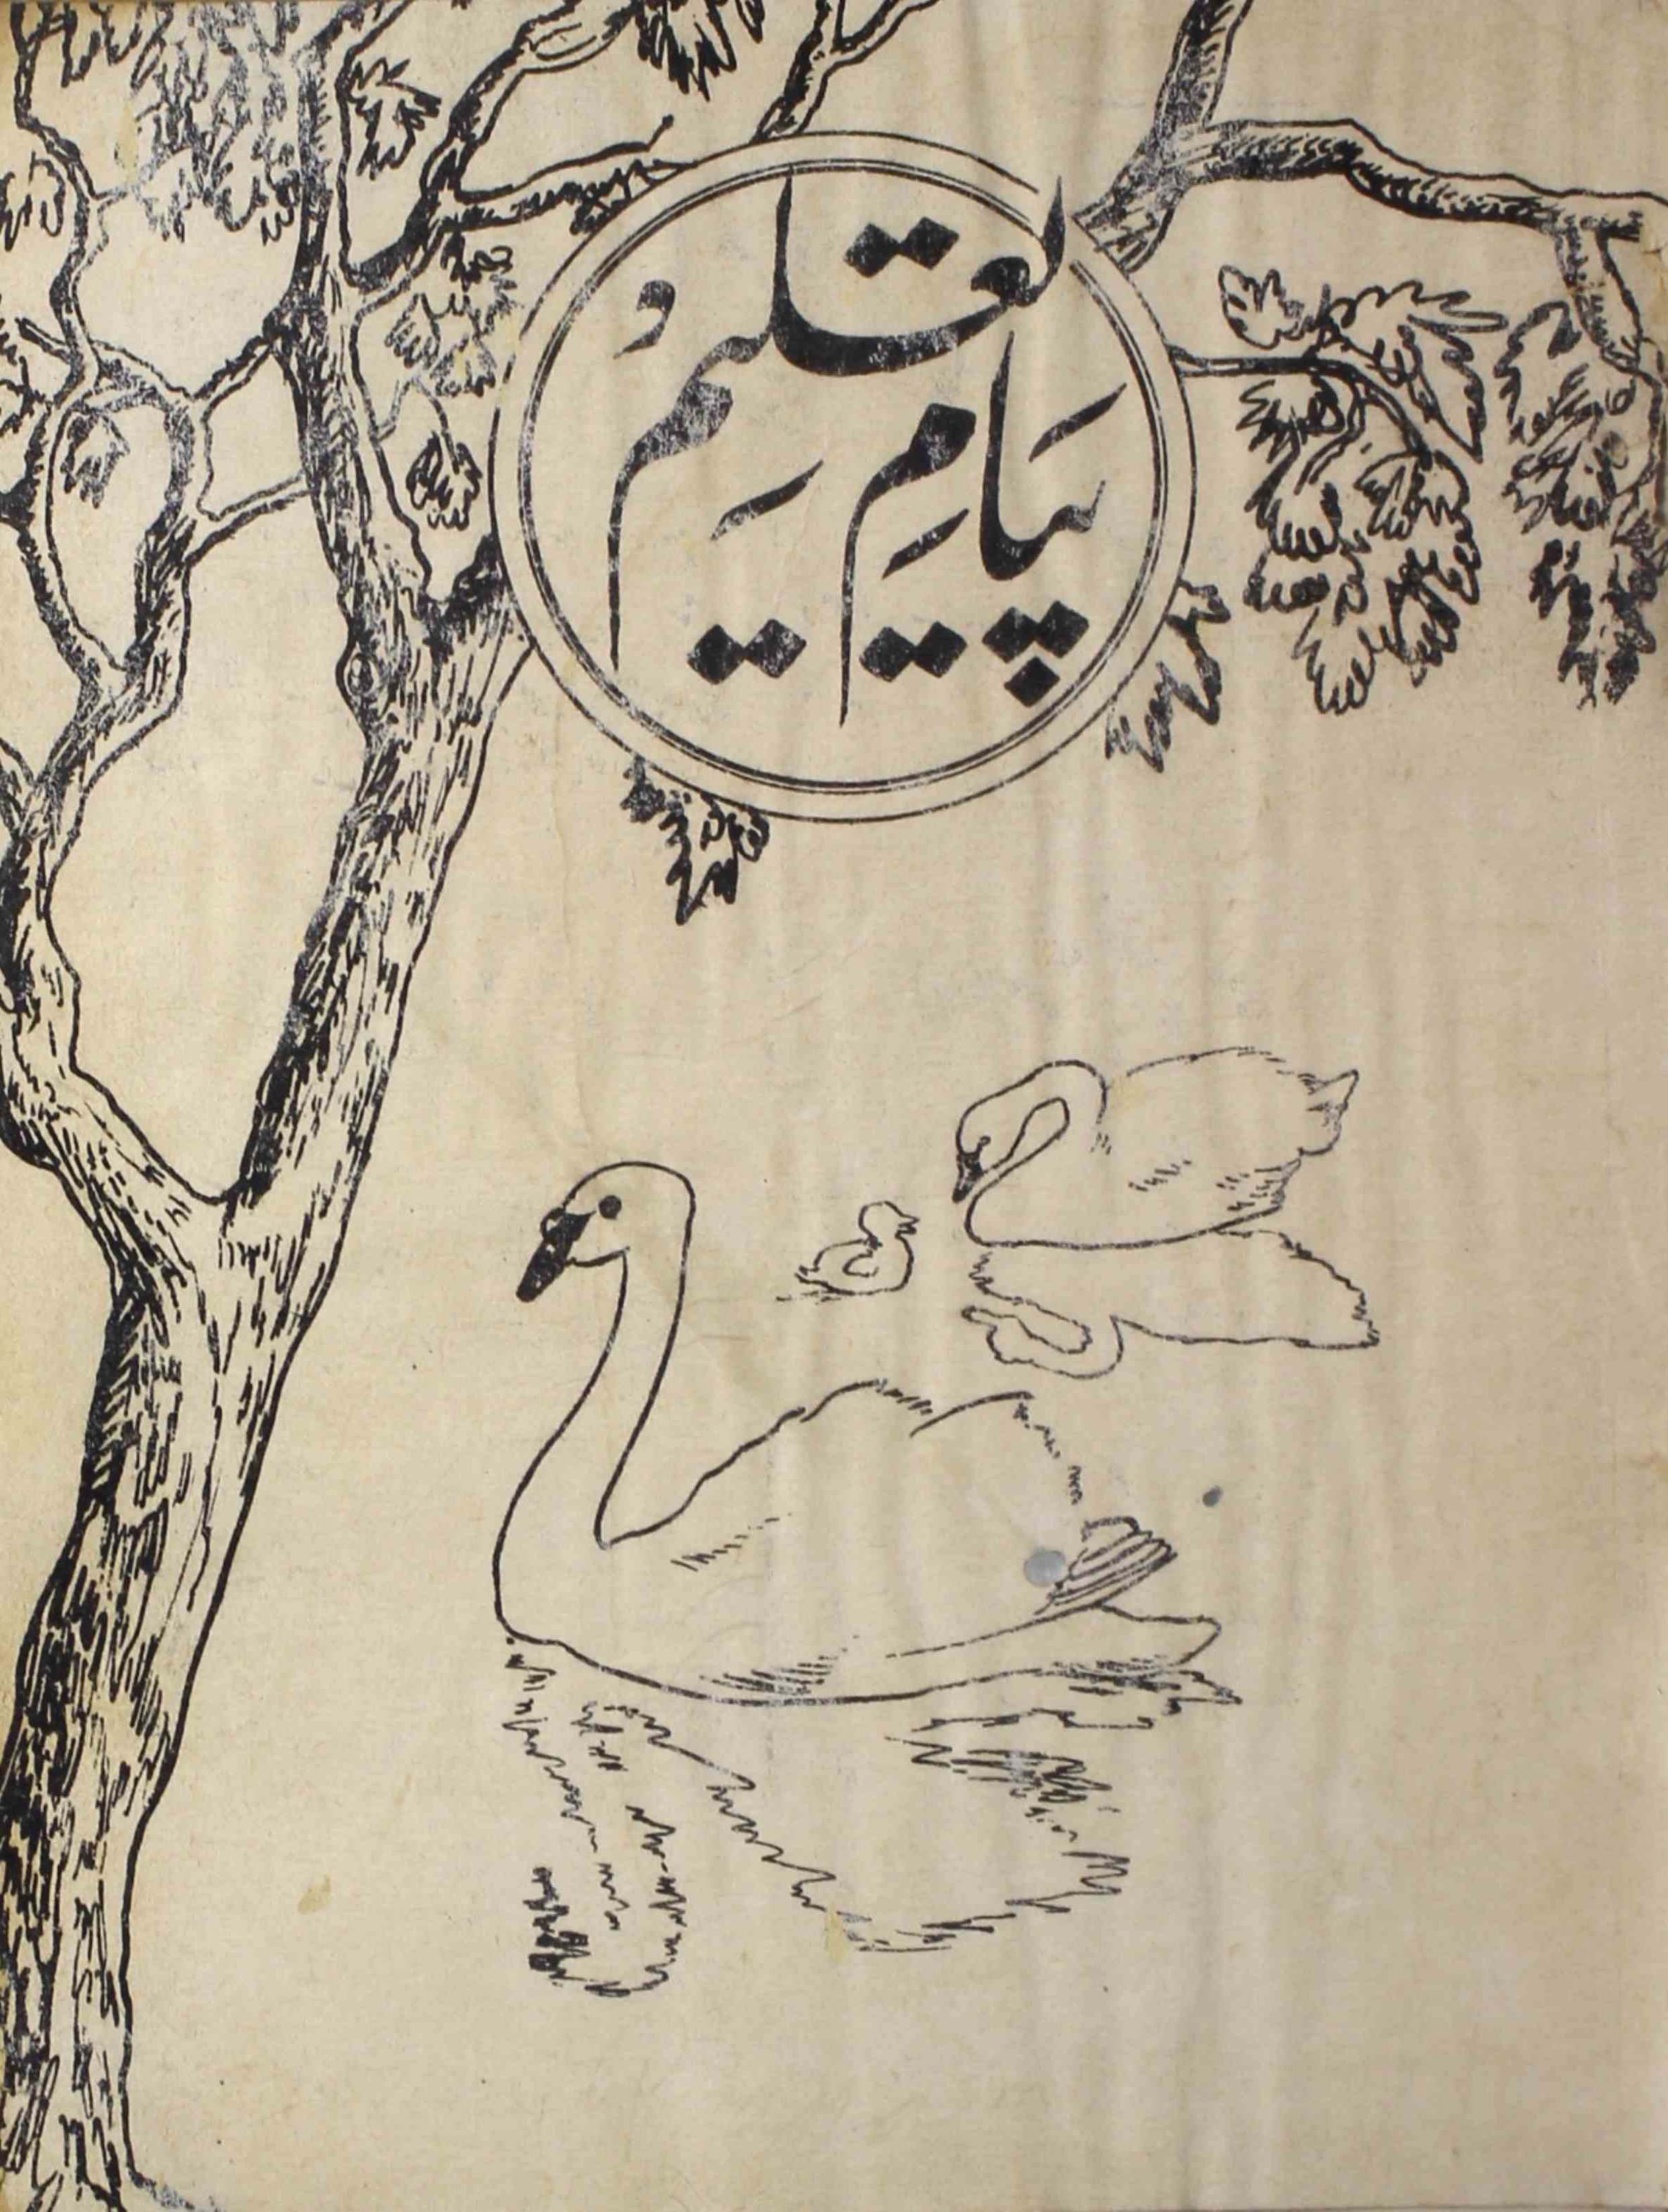 پیامِ تعلیم